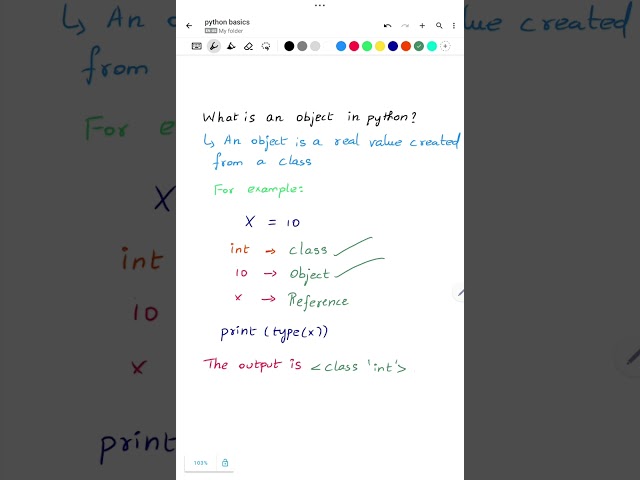 python basics
My folder
What is an object in python?
↳ An object is a real value created
from a class
For example:
X = 10
int → class
10 → Object
x → Reference
print (type(x))
The output is <class 'int'>
103%
↳ An
from
For e
X
int
10
x
print
value created